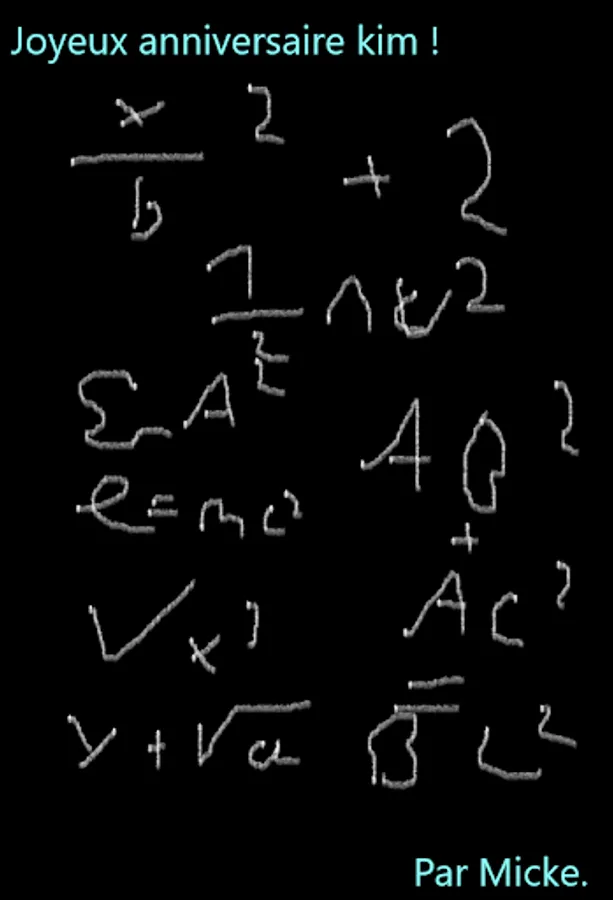 Joyeux anniversaire kim !
x/b ² + 2
1/2 ∧ ev²
Σ A²
AB²
e = mc²
+
AC²
√x²
=
y + √a
BC²
Par Micke.